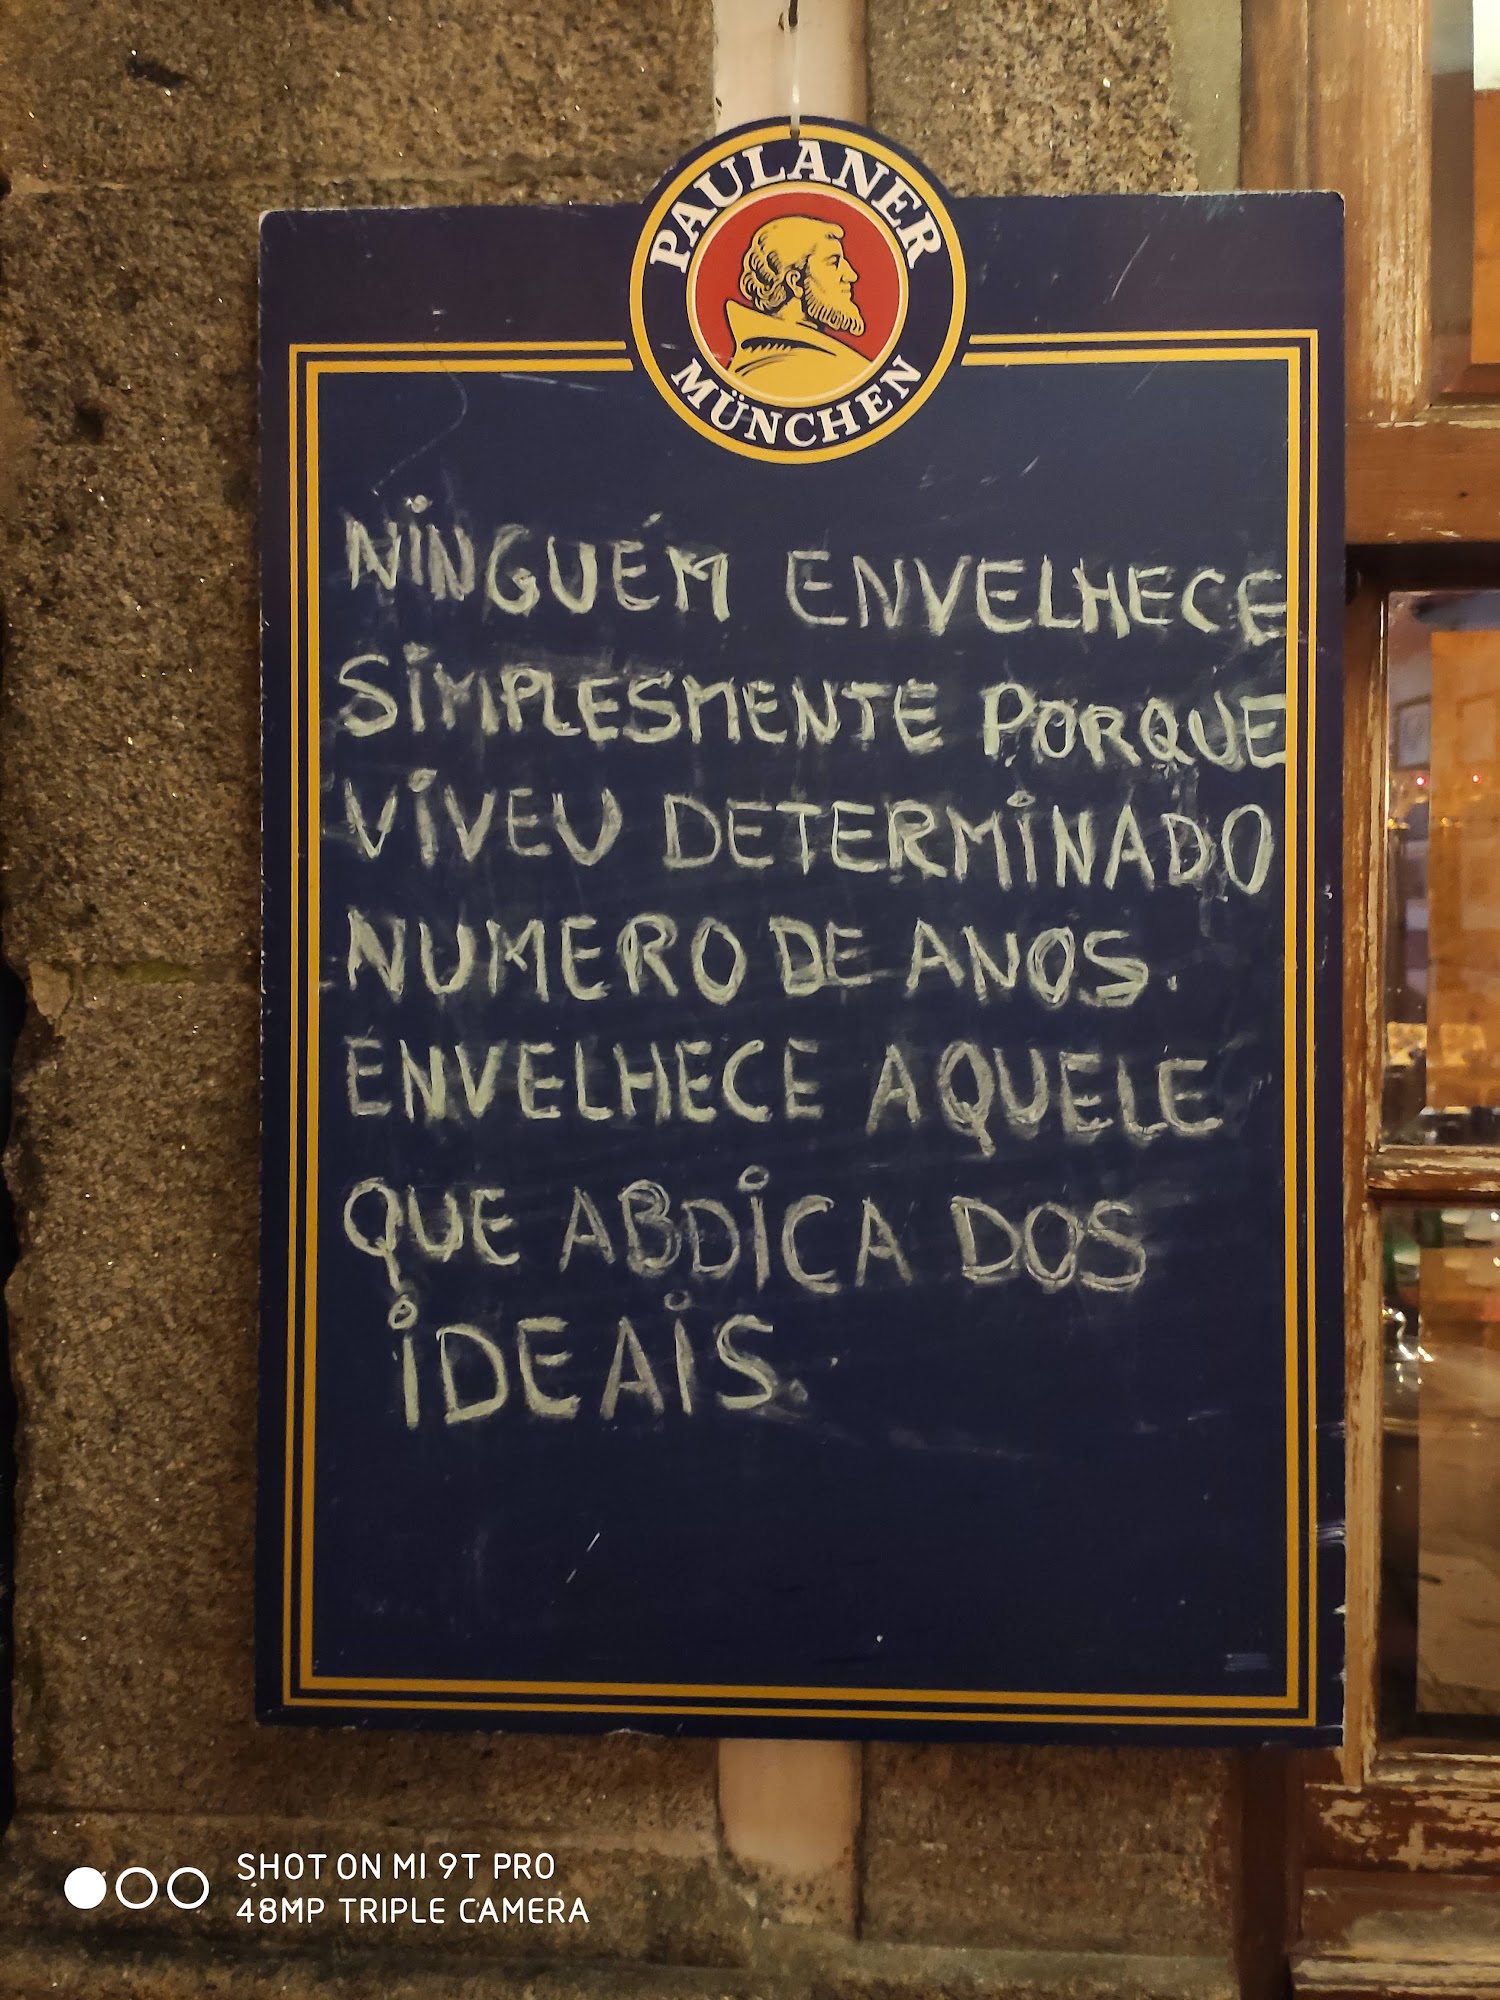 PAULANER
MÜNCHEN
NINGUÉM ENVELHECE
SIMPLESMENTE PORQUE
VIVEU DETERMINADO
NUMERO DE ANOS.
ENVELHECE AQUELE
QUE ABDICA DOS
IDEAIS.
SHOT ON MI 9T PRO
48MP TRIPLE CAMERA